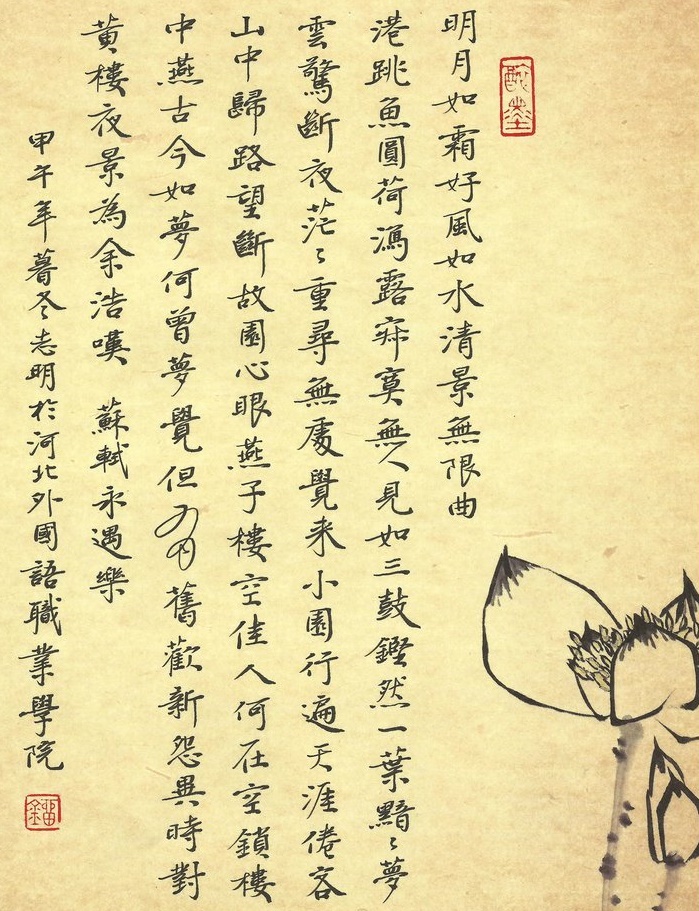 明月如霜好風如水清景無限曲
港跳魚圓荷瀉露寂寞無人見如三鼓鏗然一葉黯〻夢
雲驚斷夜茫〻重尋無處覺来小園行遍天涯倦客
山中歸路望斷故園心眼燕子樓空佳人何在空鎖樓
中燕古今如夢何曾夢覺但有舊歡新怨異時對
黃樓夜景為余浩嘆 蘇軾永遇樂
甲午年暮冬志明於河北外國語職業學院